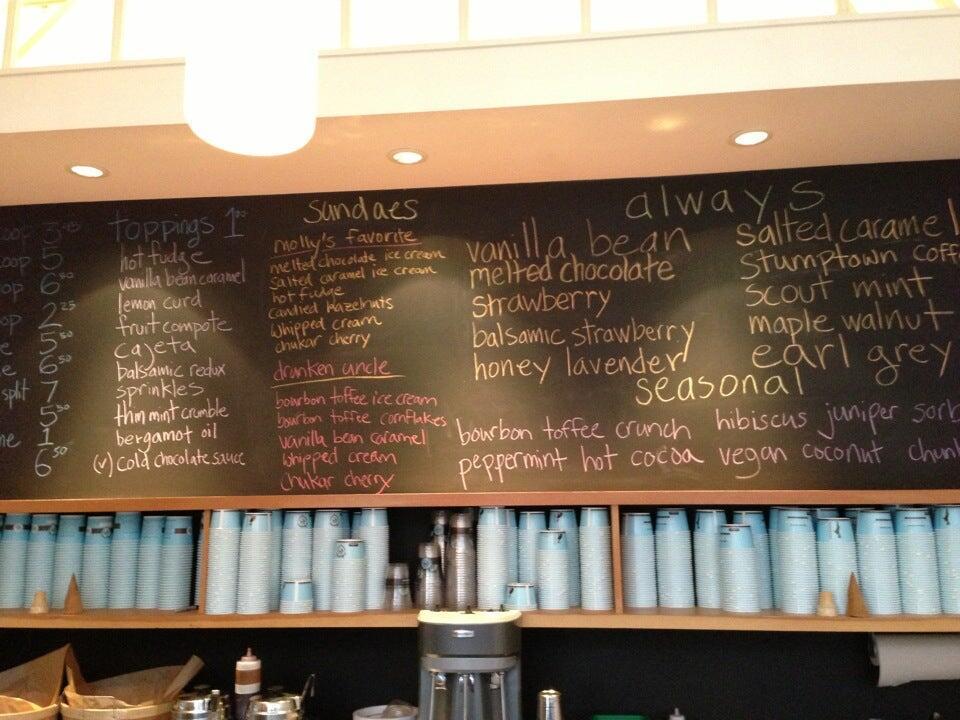 3
5
6 50
2 25
5 50
6 50
split 7
5 50
1
6 50
toppings 1.00
hot fudge
vanilla bean caramel
lemon curd
fruit compote
cajeta
balsamic redux
sprinkles
thin mint crumble
bergamot oil
(v) cold chocolate sauce
sundaes
molly's favorite
melted chocolate ice cream
salted caramel ice cream
hot fudge
candied hazelnuts
whipped cream
chukar cherry
drunken uncle
bourbon toffee ice cream
bourbon toffee cornflakes
vanilla bean caramel
whipped cream
chukar cherry
always
vanilla bean
melted chocolate
strawberry
balsamic strawberry
honey lavender
salted caramel
stumptown coff
scout mint
maple walnut
earl grey
seasonal
bourbon toffee crunch
peppermint hot cocoa
hibiscus juniper sorb
vegan coconut chun